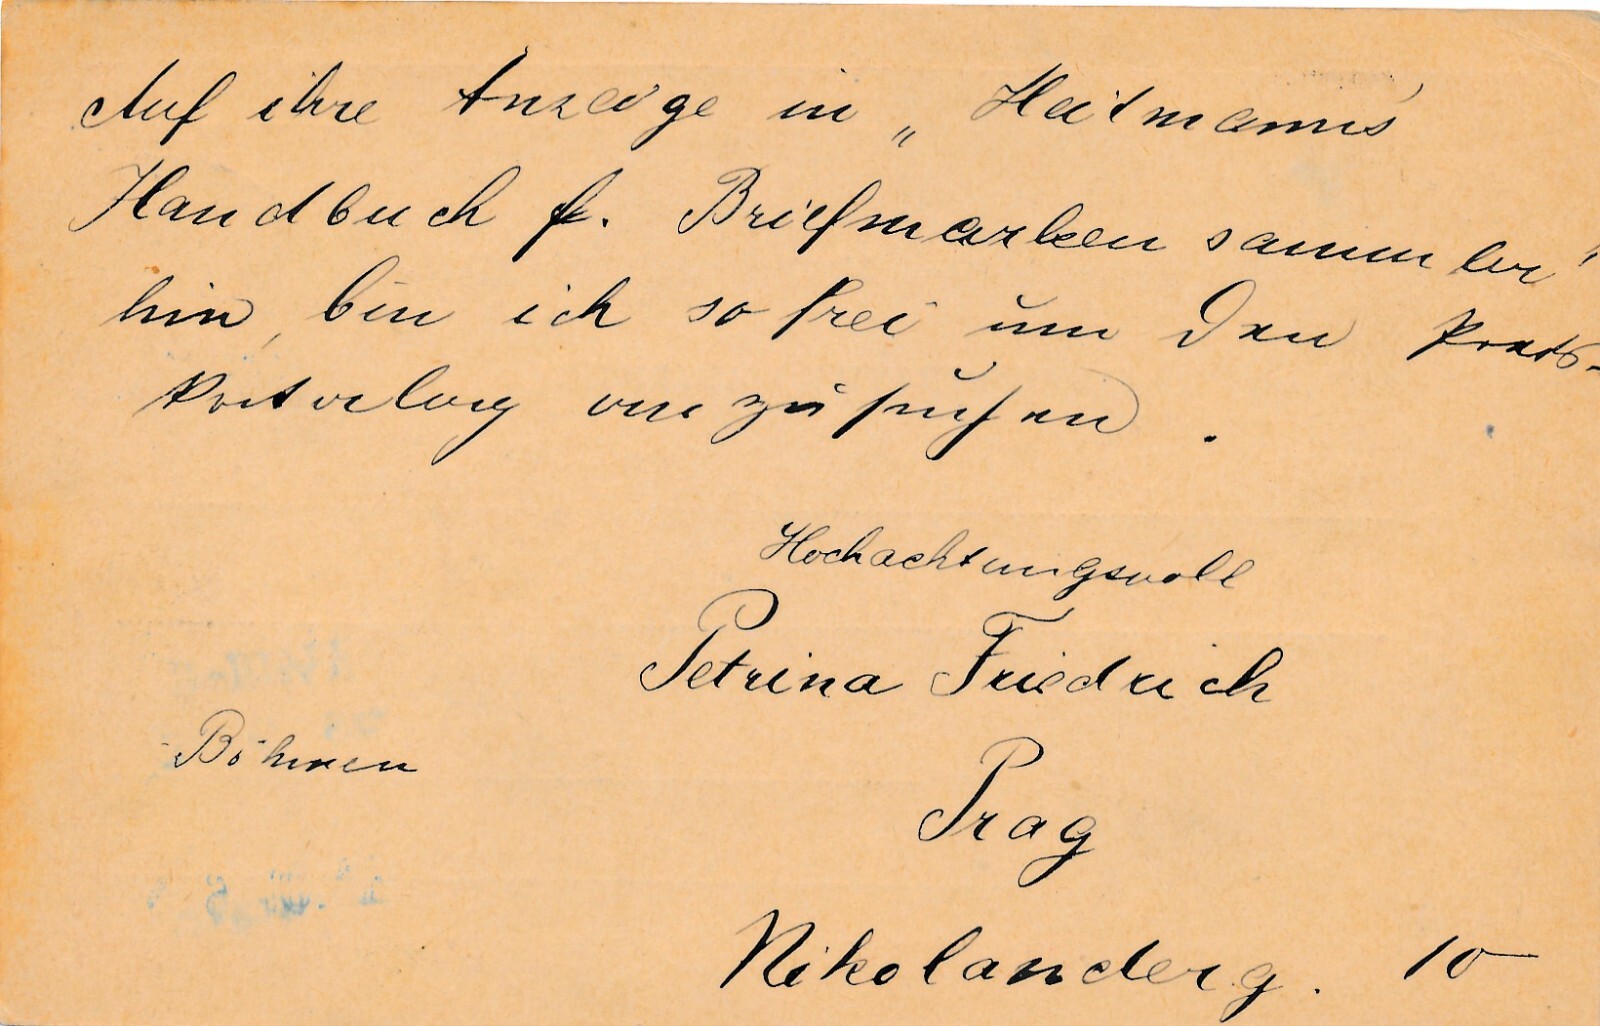 Auf ihre Anzeige in „Heitmann's
Handbuch f. Briefmarkensammler"
hin, bin ich so frei um den Preis-
katalog anzusuchen.
Hochachtungsvoll
Petrina Friedrich
Böhmen
Prag
Nikolanderg. 10